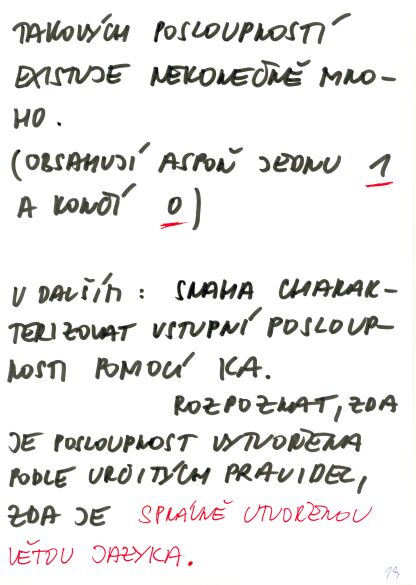 TAKOVÝCH POSLOUPNOSTÍ
EXISTUJE NEKONEČNĚ MNO-
HO.
(OBSAHUJÍ ASPOŇ JEDNU 1
A KONČÍ 0)
V DALŠÍM : SNAHA CHARAK-
TERIZOVAT VSTUPNÍ POSLOUP-
NOSTI POMOCÍ KA.
ROZPOZNAT, ZDA
JE POSLOUPNOST VYTVOŘENA
PODLE URČITÝCH PRAVIDEL,
ZDA JE SPRÁVNĚ UTVOŘENOU
VĚTOU JAZYKA.